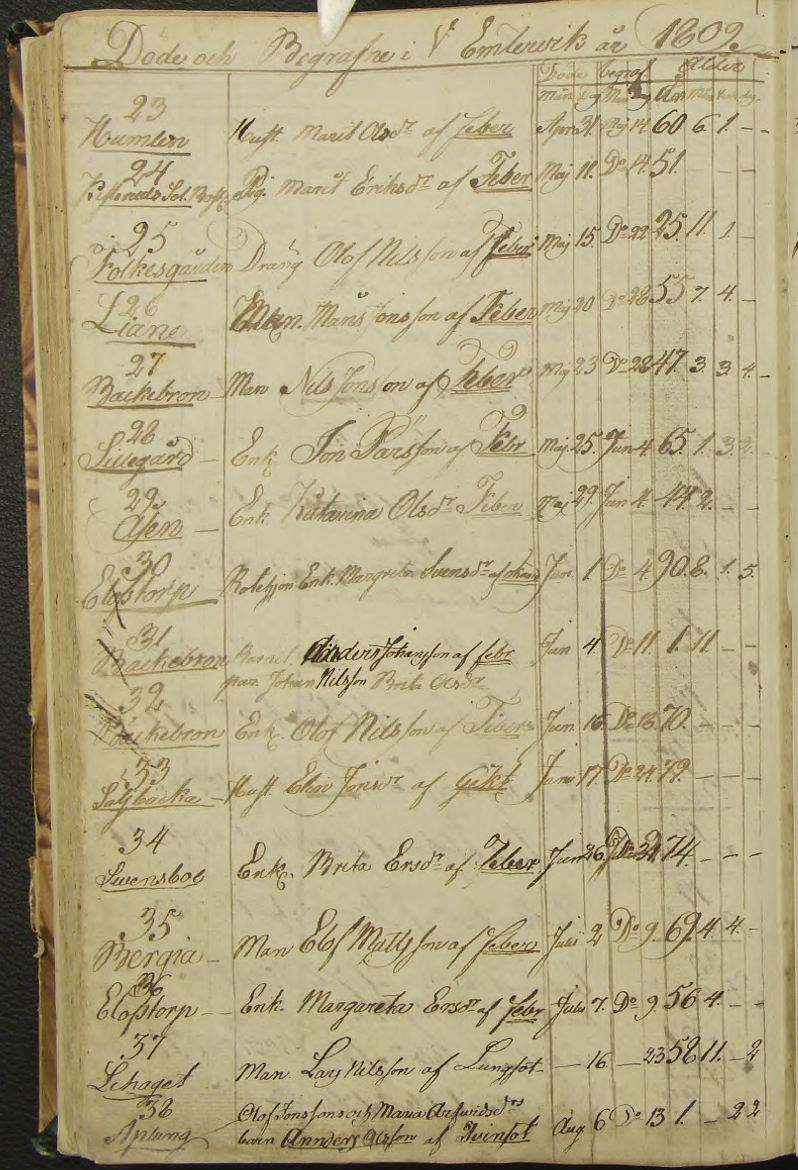 Döde och Begrafne i V Emtervik år 1809
Döde begraf Ålder
Mån Dag Mån Dag År Mån
23
Humlen Hust. Marit Olsdr af feber Apr 31 Maj 14 60 6. 1. - -
24
Pig. Marit Eriksdr af Feber Maj 11. Do 14. 51. - -
25
Folkesgården Dräng Olof Nilsson af feber Maj 15. Do 22 25. 11. 1. -
26
Liane Man. Måns Jonsson af Feber Maj 20 Do 28 55 7. 4. -
27
Backebron Man Nils Jonsson af feber Maj 23 Do 28 47. 3. 3 4. -
28
Sillegård - Enk Jon Pärsson af Febr Maj 25. Jun 4 65. 1. 3. 2.
29
Åsen - Enk. Katarina Olsdr Feber Maj 29 Jun 4. 44 2. - -
30
Elofstorp Rotehjon Enk. Margreta Svensdr af Jun 1 Do 4. 90. 8. 1. 5.
31
Backebron Barnet. Anders Johansson af febr Jun 4 Do 11. 1. 11 - -
par. Johan Nilsson Brita Olsdr
32
Backebron Enk. Olof Nilsson af Febers Jun 16. Do 18. 70. - - -
33
Sältjbacka - Hust Elin Jonsdr af Gikt Juni 17 Do 24. 79. - - -
34
Swensboo Enk. Brita Ersdr af Feber Jun 26 74. - - -
35
Bergia - Man Elof Mattsson af febers Julii 2 Do 9. 69. 4 4. -
36
Elofstorp - Enk. Margareta Ersdr af febr Julii 7. Do 9. 56 4. - -
37
Lehaget Man. Lars Nilsson af Lungsot - 16. - 23 58 11. - 2
38
Aplung Olof Jonsson och Maria Arfwidsdrs
barn Annders Olsson af Twinsot Aug 6 Do 13 1. - 2 2